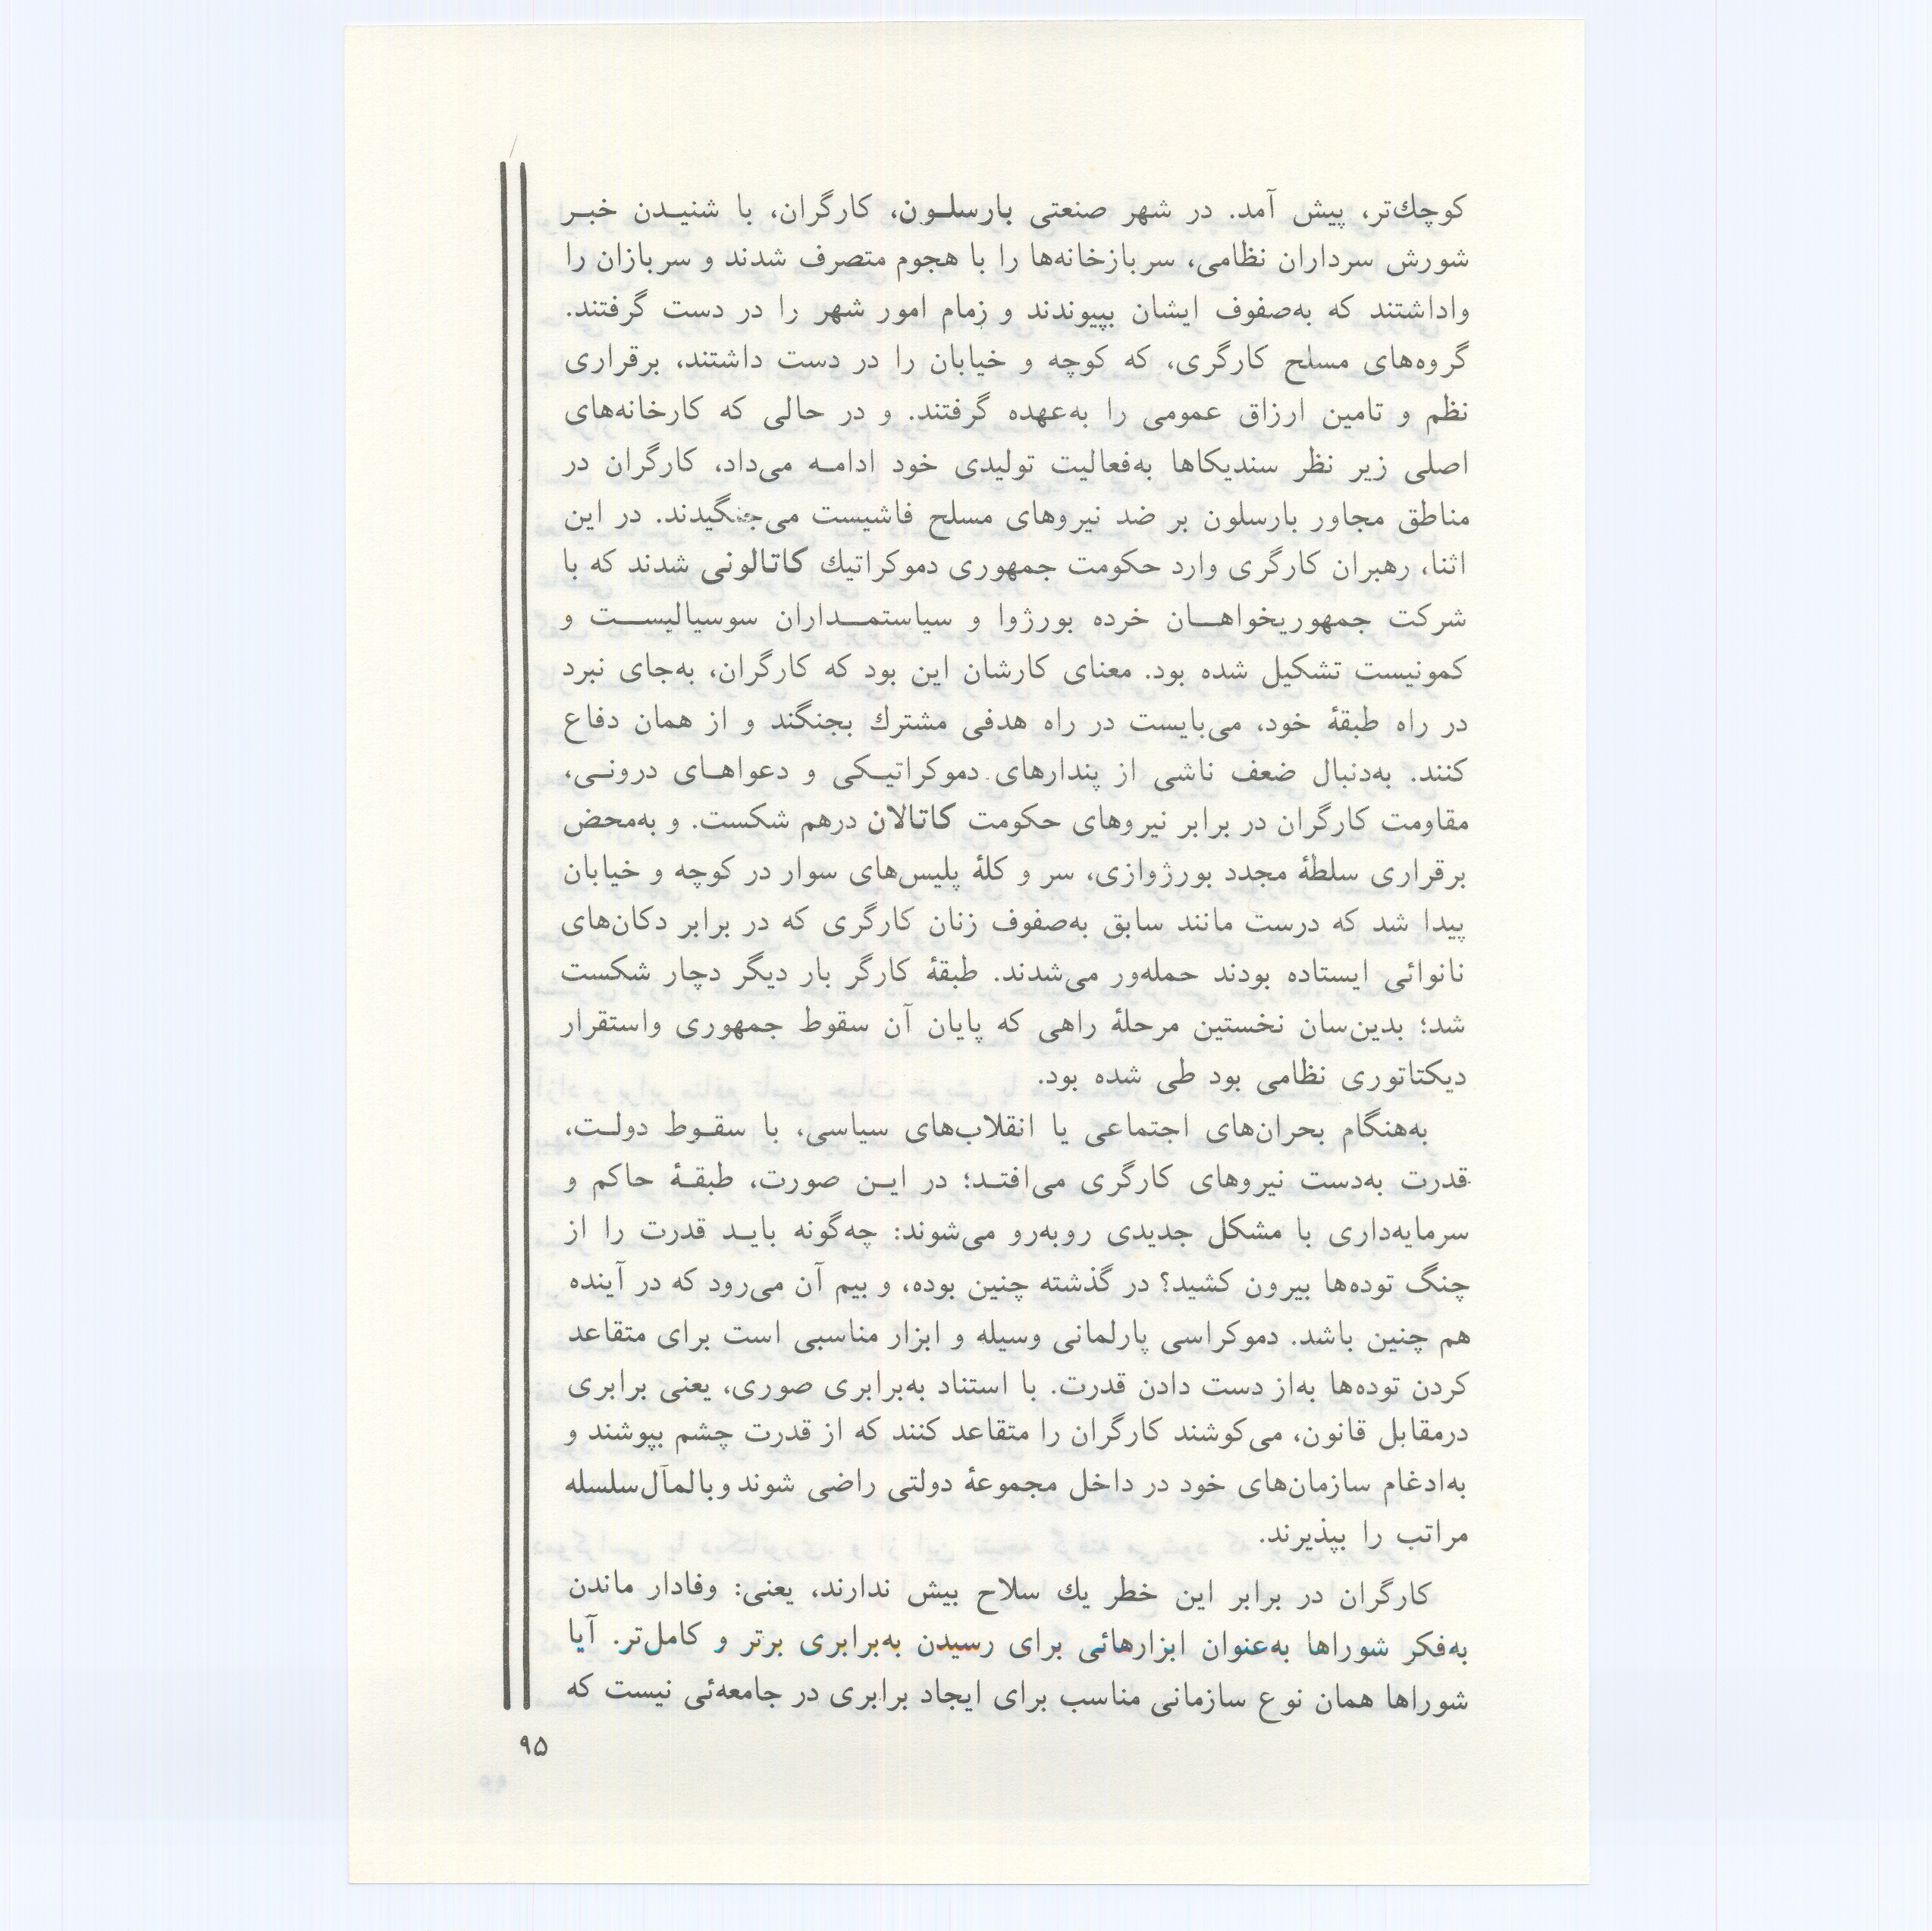 کوچك‌تر، پیش آمد. در شهر صنعتی بارسلـون، کارگران، با شنیـدن خبـر
شورش سرداران نظامی، سربازخانه‌ها را با هجوم متصرف شدند و سربازان را
واداشتند که به‌صفوف ایشان بپیوندند و زمام امور شهر را در دست گرفتند.
گروه‌های مسلح کارگری، که کوچه و خیابان را در دست داشتند، برقراری
نظم و تامین ارزاق عمومی را به‌عهده گرفتند. و در حالی که کارخانه‌های
اصلی زیر نظر سندیکاها به‌فعالیت تولیدی خود ادامـه می‌داد، کارگران در
مناطق مجاور بارسلون بر ضد نیروهای مسلح فاشیست می‌جنگیدند. در این
اثنا، رهبران کارگری وارد حکومت جمهوری دموکراتیك کاتالونی شدند که با
شرکت جمهوریخواهـان خرده بورژوا و سیاستمـداران سوسیالیسـت و
کمونیست تشکیل شده بود. معنای کارشان این بود که کارگران، به‌جای نبرد
در راه طبقهٔ خود، می‌بایست در راه هدفی مشترك بجنگند و از همان دفاع
کنند. به‌دنبال ضعف ناشی از پندارهای دموکراتیـکی و دعواهـای درونـی،
مقاومت کارگران در برابر نیروهای حکومت کاتالان درهم شکست. و به‌محض
برقراری سلطهٔ مجدد بورژوازی، سر و کلهٔ پلیس‌های سوار در کوچه و خیابان
پیدا شد که درست مانند سابق به‌صفوف زنان کارگری که در برابر دکان‌های
نانوائی ایستاده بودند حمله‌ور می‌شدند. طبقهٔ کارگر بار دیگر دچار شکست
شد؛ بدین‌سان نخستین مرحلهٔ راهی که پایان آن سقوط جمهوری واستقرار
دیکتاتوری نظامی بود طی شده بود.
به‌هنگام بحران‌های اجتماعی یا انقلاب‌های سیاسی، با سقـوط دولـت،
قدرت به‌دست نیروهای کارگری می‌افتـد؛ در ایـن صورت، طبقـهٔ حاکم و
سرمایه‌داری با مشکل جدیدی روبه‌رو می‌شوند: چه‌گونه بایـد قدرت را از
چنگ توده‌ها بیرون کشید؟ در گذشته چنین بوده، و بیم آن می‌رود که در آینده
هم چنین باشد. دموکراسی پارلمانی وسیله و ابزار مناسبی است برای متقاعد
کردن توده‌ها به‌از دست دادن قدرت. با استناد به‌برابری صوری، یعنی برابری
درمقابل قانون، می‌کوشند کارگران را متقاعد کنند که از قدرت چشم بپوشند و
به‌ادغام سازمان‌های خود در داخل مجموعهٔ دولتی راضی شوند وبالمآل‌سلسله
مراتب را بپذیرند.
کارگران در برابر این خطر یك سلاح بیش ندارند، یعنی: وفادار ماندن
به‌فکر شوراها به‌عنوان ابزارهائی برای رسیدن به‌برابری برتر و کامل‌تر. آیا
شوراها همان نوع سازمانی مناسب برای ایجاد برابری در جامعه‌ئی نیست که
۹۵